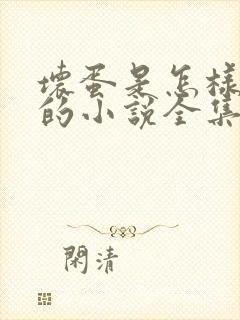 壞蛋是怎樣
的小說全集
閑清